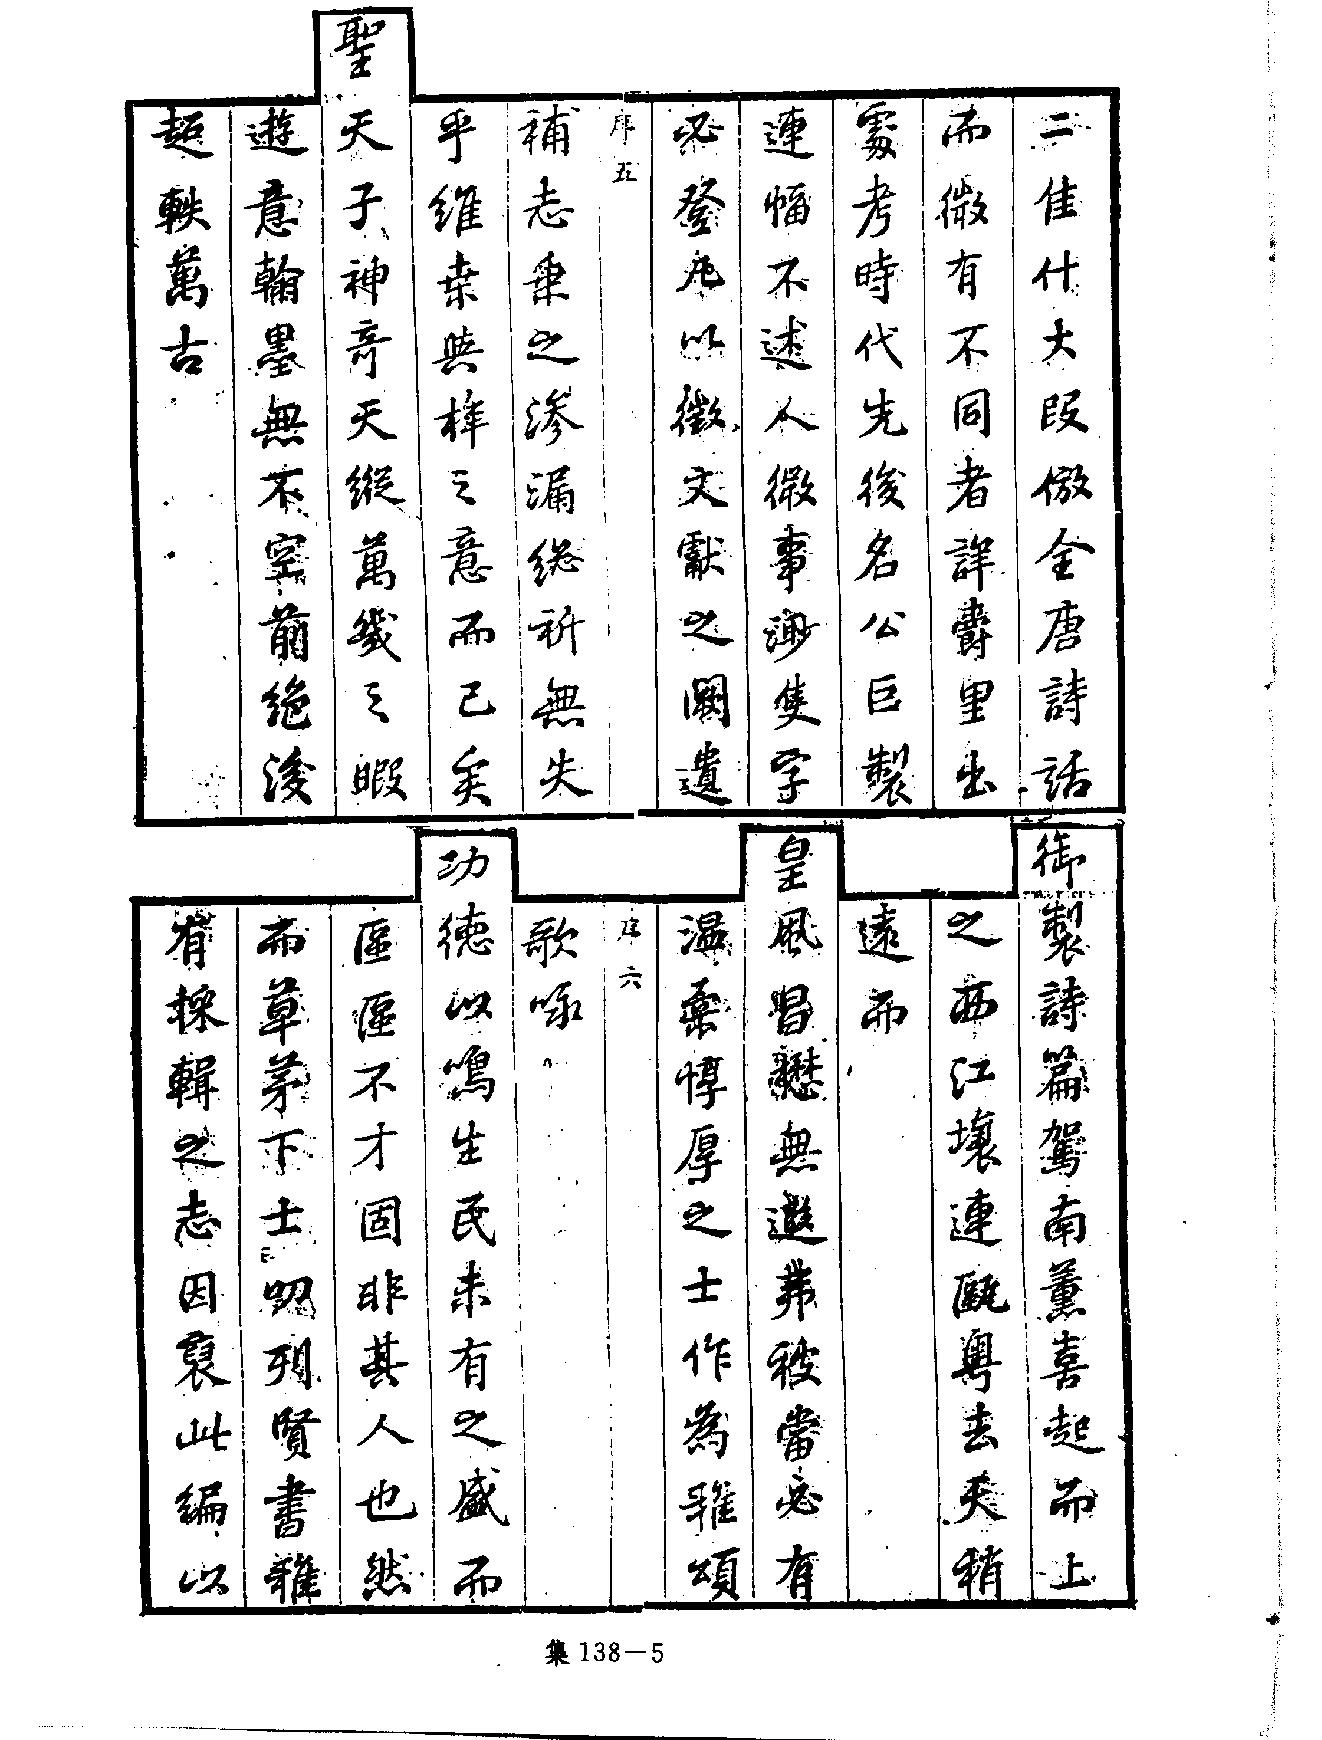 二佳什大段倣全唐詩話
而微有不同者詳爵里出
處考時代先後名公巨製
連幅不述人微事渺隻字
必登凡以徵文獻之闕遺
序五
補志乗之滲漏總祈無失
乎維桒與梓之意而已矣
聖天子神奇天縱萬幾之暇
遊意翰墨無不空前絶後
超軼萬古
御製詩篇駕南薫喜起而上
之西江壤連甌粤去天稍
遠而
皇風昌懋無遐弗被當必有
温柔惇厚之士作為雅頌
序六
歌咏
功德以鳴生民未有之盛而
區區不才固非其人也然
而草茅下士叨列賢書雅
有採輯之志因裒此編以
集138－5